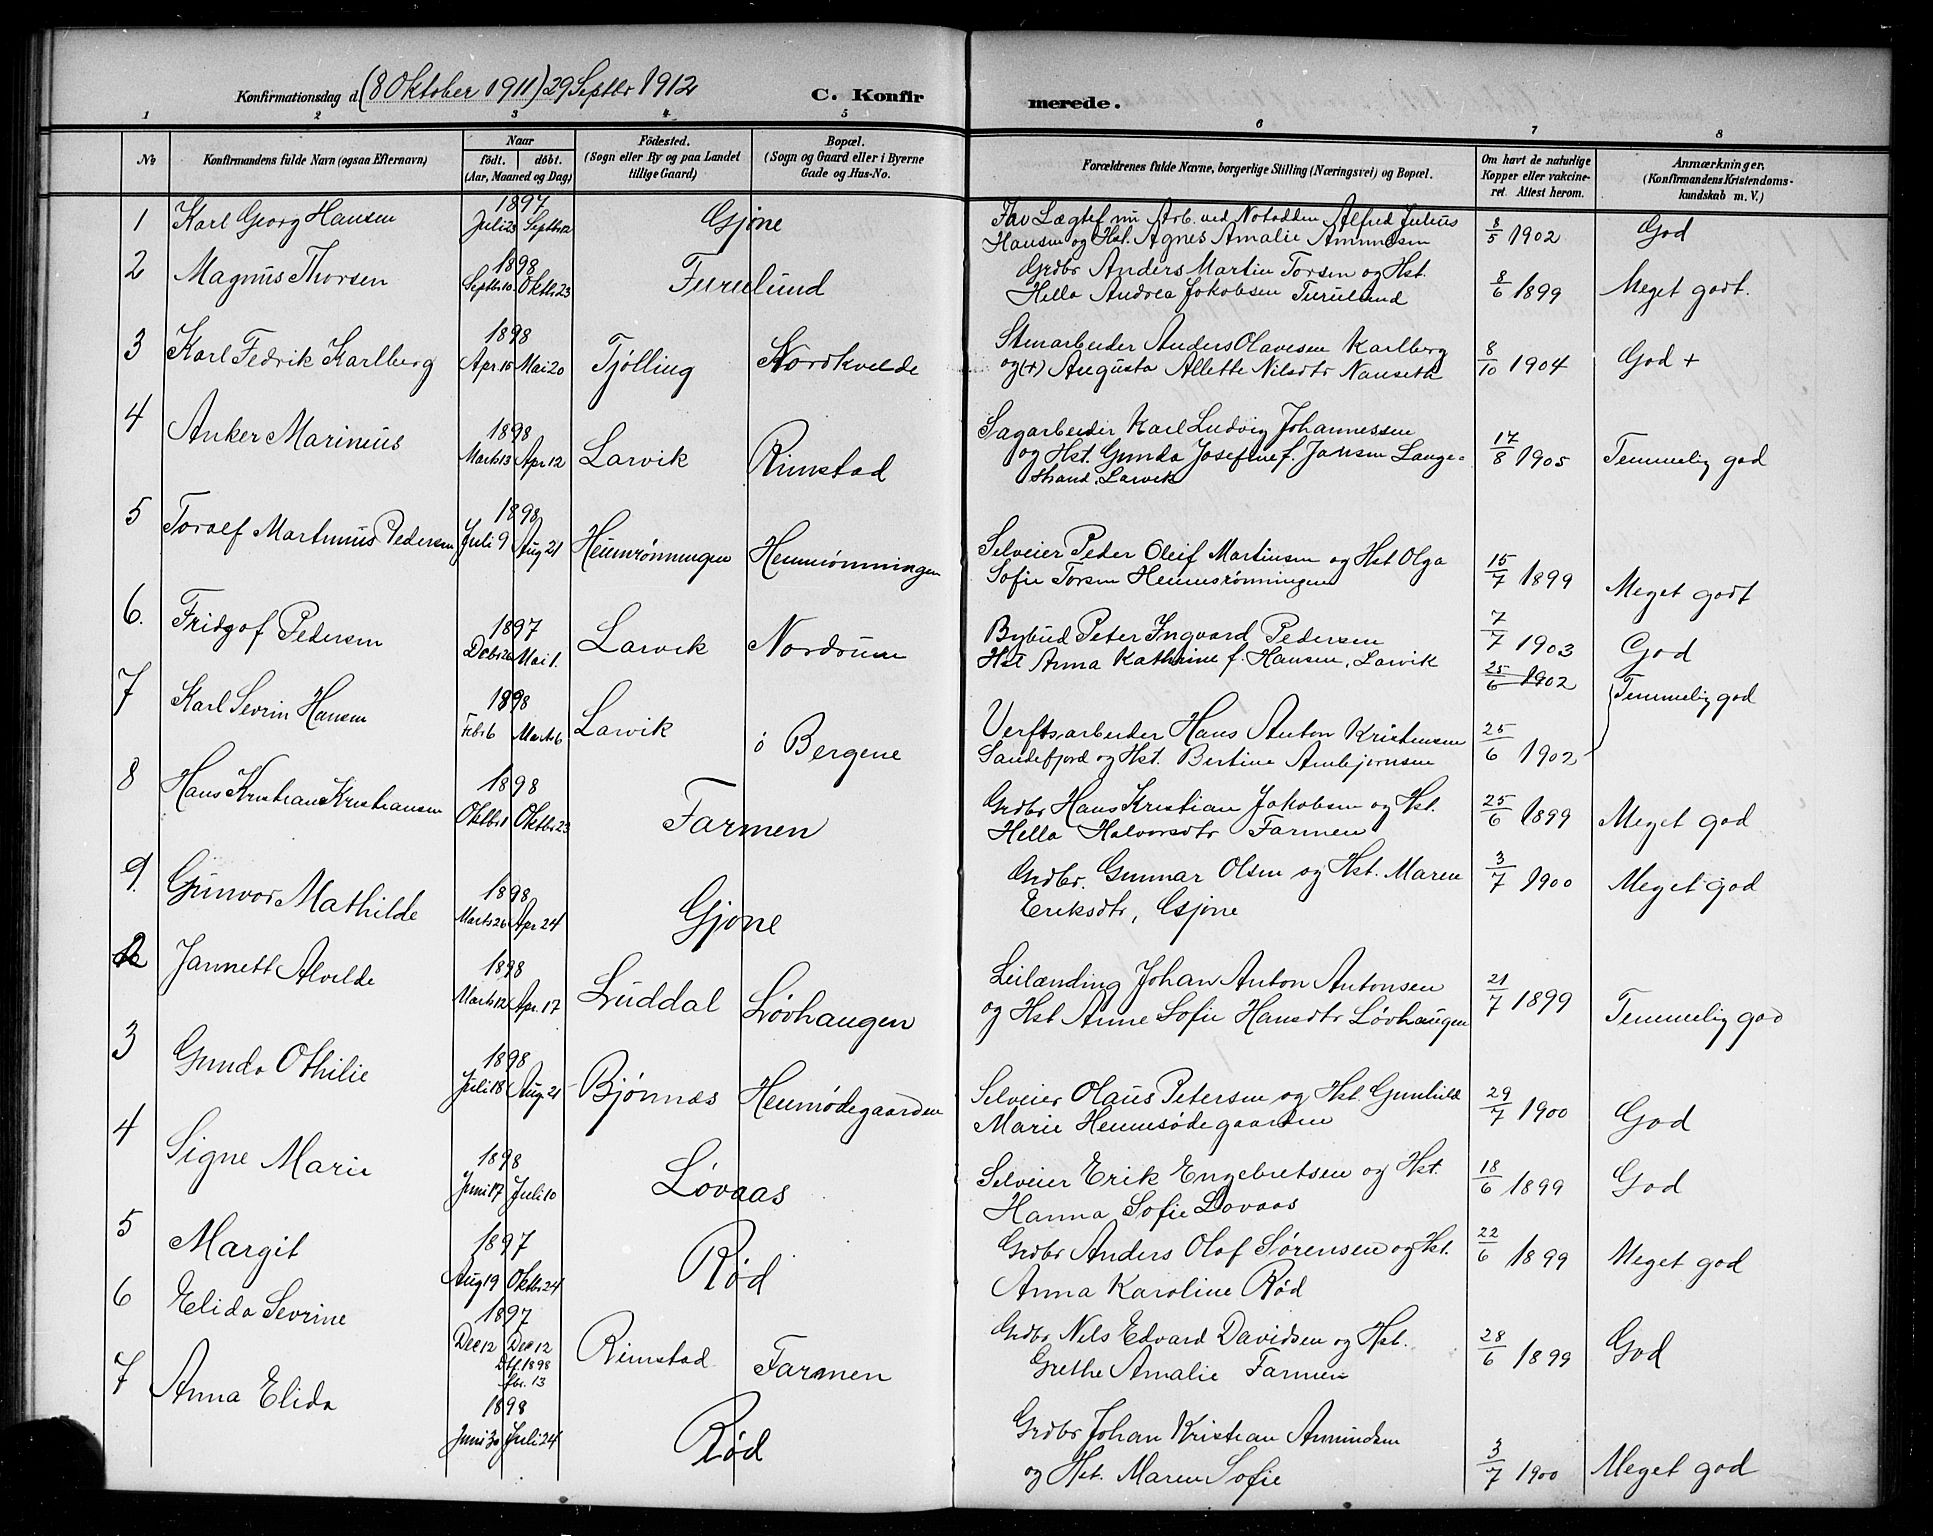 Konfirmationsdag d. (8 Oktober 1911) 29 Septbr 1912
C. Konfir merede.
1 2 3 4 5 6 7 8
No
Konfirmandens fulde Navn (ogsaa Efternavn)
Naar
født. døbt.
(Aar, Maaned og Dag)
Fødested.
(Sogn eller By og paa Landet
tillige Gaard)
Bopæl.
(Sogn og Gaard eller i Byerne
Gade og Hus-No.
Forældrenes fulde Navne, borgerlige Stilling (Næringsvei) og Bopæl.
Om havt de naturlige
Kopper eller vakcine-
ret. Attest herom.
Anmærkninger.
(Konfirmandens Kristendoms-
kundskab m. V.)
1 Karl Georg Hansen 1897 Juli 23 Septbr 12 Gjøne
Fav Lægtef nu Arb. ved Notodden Alfred Julius
Hansen og Hst. Agnes Amalie Ammesen 8/5 1902 God
2 Magnus Thorsen 1898 Septbr 10. Oktbr 23 Furulund
Grdbr Anders Martin Torsen og Hst.
Hella Andrea Jakobsen Furulund 8/6 1899 Meget godt.
3 Karl Fedrik Karlberg 1898 Apr. 15 Mai 20 Tjølling Nordkvelde
Stenarbeider Anders Olavesen Karlberg
og (+) Augusta Allette Nilsdtr Nanseth 8/10 1904 God +
4 Anker Marinius 1898 Marts 13 Apr 12 Larvik Rimstad
Sagarbeider Karl Ludvig Johannessen
og Hst. Gunda Josefine f. Jansen Lange-
strand, Larvik 17/8 1905 Temmelig god
5 Toralf Martinius Pedersen 1898 Juli 9 Aug 21 Heumrønningen Heumrønningen
Selveier Peder Oleif Martinsen og Hst Olga
Sofie Torsen Heumsrønningen 15/7 1899 Meget godt
6. Fridgof Pedersen 1897 Debr 26 Mai 1. Larvik Nordrum
Bybud Peter Ingvard Pedersen
Hst Anna Kathrine f. Hansen, Larvik 7/7 1903 God
25/6 1902
7 Karl Sevrin Hansen 1898 Febr 6 Marts 6 Larvik ö Bergene
Verftsarbeider Hans Anton Kristensen
Sandefjord og Hst. Bertine Ambjørnsen 25/6 1902 Temmelig god
8 Hans Kristian Kristiansen 1898 Oktbr 1 Oktbr 23 Farmen
Grdbr Hans Kristian Jakobsen og Hst.
Hella Halvorsdtr Farmen 25/6 1899 Meget god
9. Gunvor Mathilde 1898 Marts 26 Apr 24 Gjøne
Grdbr. Gunnar Olsen og Hst. Maren
Eriksdtr, Gjøne 3/7 1900 Meget god
2 Jannett Alvilde 1898 Marts 12 Apr. 17 Luddal Løvhaugen
Leilænding Johan Anton Antonsen
og Hst Anne Sofie Hansdtr Løvhaugen 21/7 1899 Temmelig god
3 Gunda Othilie 1898 Juli 18 Aug 21 Bjønnæs Heumødegaarden
Selveier Olaus Petersen og Hst Gunhild
Marie Heumsødegaarden 29/7 1900 God
4 Signe Marie 1898 Juni 17 Juli 10 Løvaas
Selveier Erik Engebretsen og Hst.
Hanna Sofie Løvaas 18/6 1899 God
5 Margit 1897 Aug 19 Oktbr 24 Rød
Grdbr Anders Olaf Sørensen og Hst.
Anna Karoline Rød 22/6 1899 Meget god
6 Elida Sevrine 1897 Dec 12 Dec 12
Dtf. 1898
fbr. 13 Rimstad Farmen
Grdbr Nils Edvard Davidsen og Hst.
Grethe Amalie Farmen 28/6 1899 God
7 Anna Elida 1898 Juni 30 Juli 24 Rød
Grdbr Johan Kristian Amundsen
og Hst. Maren Sofie 3/7 1900 Meget god